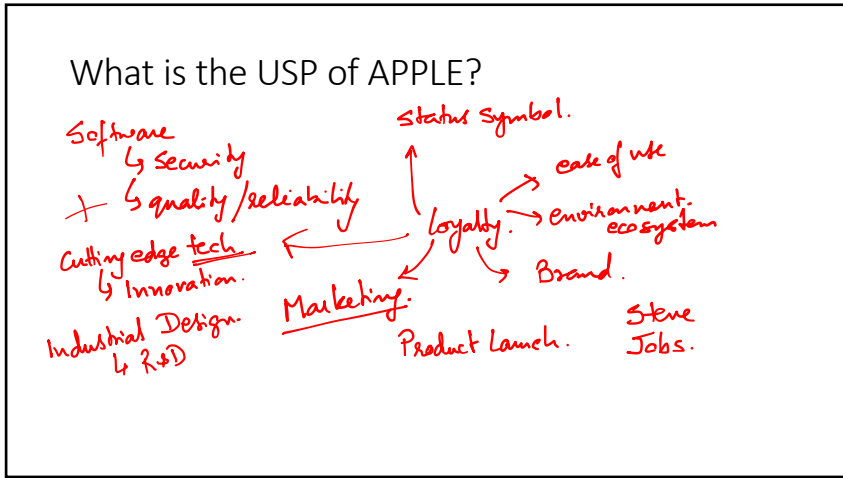 What is the USP of APPLE?
Software
↳ security
+ ↳ quality/reliability
Cutting edge tech
↳ Innovation.
Industrial Design.
↳ R&D
Status symbol.
Loyalty.
ease of use
environment.
ecosystem
Brand.
Marketing.
Product Launch.
Steve
Jobs.